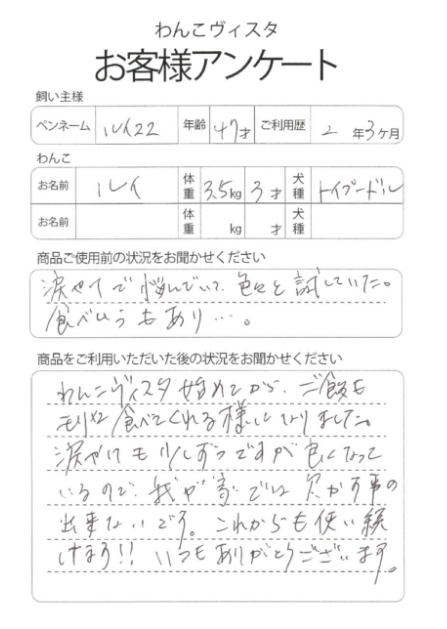 わんこヴィスタ
お客様アンケート
飼い主様
ペンネーム ルイ22 年齢 47才 ご利用歴 2年3ヶ月
わんこ
お名前 ルイ 体重 3.5kg 3才 犬種 トイプードル
お名前 体重 kg 才 犬種
商品ご使用前の状況をお聞かせください
涙やけで悩んでいて、色々と試していた。
食べムラもあり…。
商品をご利用いただいた後の状況をお聞かせください
わんこヴィスタ始めてから、ご飯も
モリモリ食べてくれる様になりました。
涙やけも少しずつですが良くなって
いるので、我が家では欠かす事の
出来ないです。これからも使い続
けます!! いつもありがとうございます。